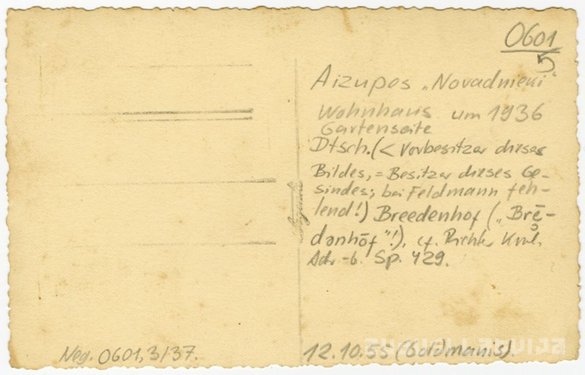 0601
5
Aizupes „Novadnieki"
Wohnhaus um 1936
Gartenseite
Dtsch. (< Vorbesitzer dieses
Bildes, = Besitzer dieses Ge-
sindes; bei Feldmann feh-
lend!) Breedenhof („Brē-
denhōf"!), cf. Richter
Adr.-b. Sp. 429.
Neg. 0601,3/37.
12.10.55 (Goldmanis).